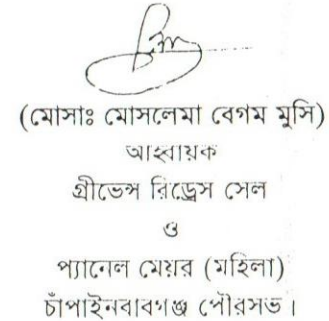 (মোসাঃ মোসলেমা বেগম মুসি)
আহবায়ক
গ্রীভেন্স রিড্রেস সেল
ও
প্যানেল মেয়র (মহিলা)
চাঁপাইনবাবগঞ্জ পৌরসভা।